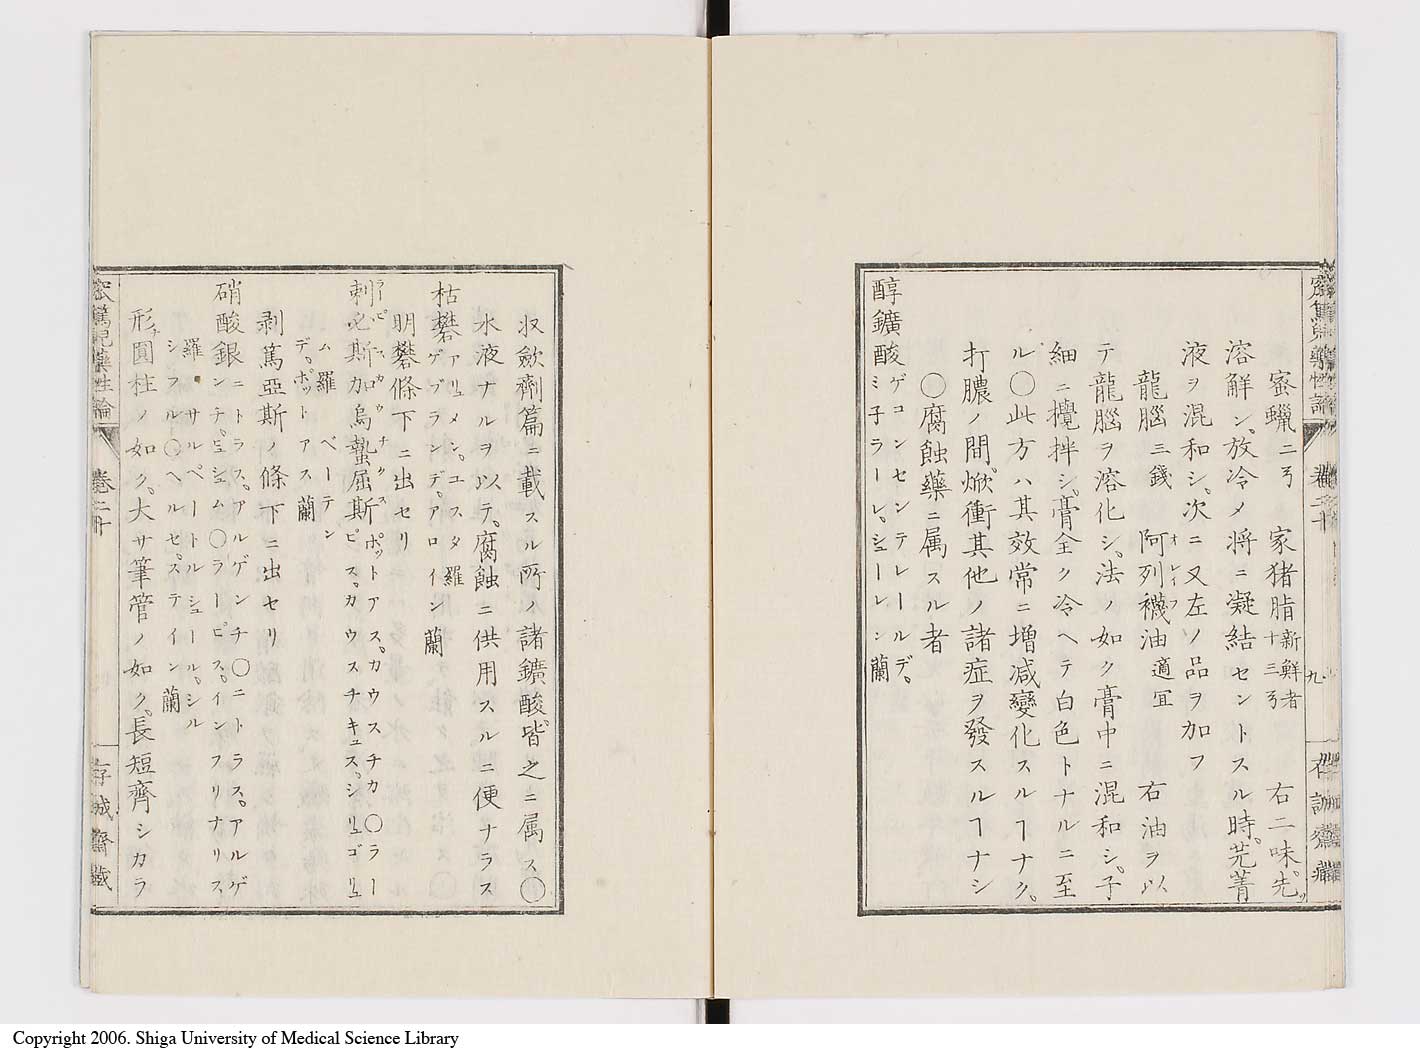 蜜蠟二ヲ 家猪脂新鮮者十三ヲ 右二味先ツ
溶解シ、放冷メ將ニ凝結セントスル時、芫菁
液ヲ混和シ、次ニ又左ノ品ヲ加フ
龍腦三錢 阿列襪油適宜 右油ヲ以
オレイフ
テ龍腦ヲ溶化シ、法ノ如ク膏中ニ混和シ、子
細ニ攪拌シ、膏全ク冷ヘテ白色トナルニ至
ル○此方ハ其效常ニ增減變化スルヿナク、
打膿ノ間、焮衝其他ノ諸症ヲ發スルヿナシ
○腐蝕藥ニ属スル者
醇鑛酸ゲコンセンテレールデ、
ミ子ラーレ、シューレン蘭
九
收斂劑篇ニ載スル所ノ諸鑛酸、皆之ニ属ス○
水液ナルヲ以テ、腐蝕ニ供用スルニ便ナラス
枯礬アリュメン、ユスタ羅
ゲブランデ、アロイン蘭
明礬條下ニ出セリ
刺必斯加烏蟄屈斯ポットアス、カウスチカ、○ラー
ラーピスカウチクス
ピス、カウスチキュス、シリュゴリュ
ム羅 ベーテン
デ、ポットアス蘭
剥篤亞斯ノ條下ニ出セリ
硝酸銀ニトラス、アルゲンチ○ニトラス、アルゲ
ンチ、ピシュム○ラーピス、インフリナリス
羅 サルペートルシュール、シル
シフル○ヘルセ、ステイン蘭
形チ圓柱ノ如ク、大サ筆管ノ如ク、長短齊シカラ
卷二十
存誠齋藏